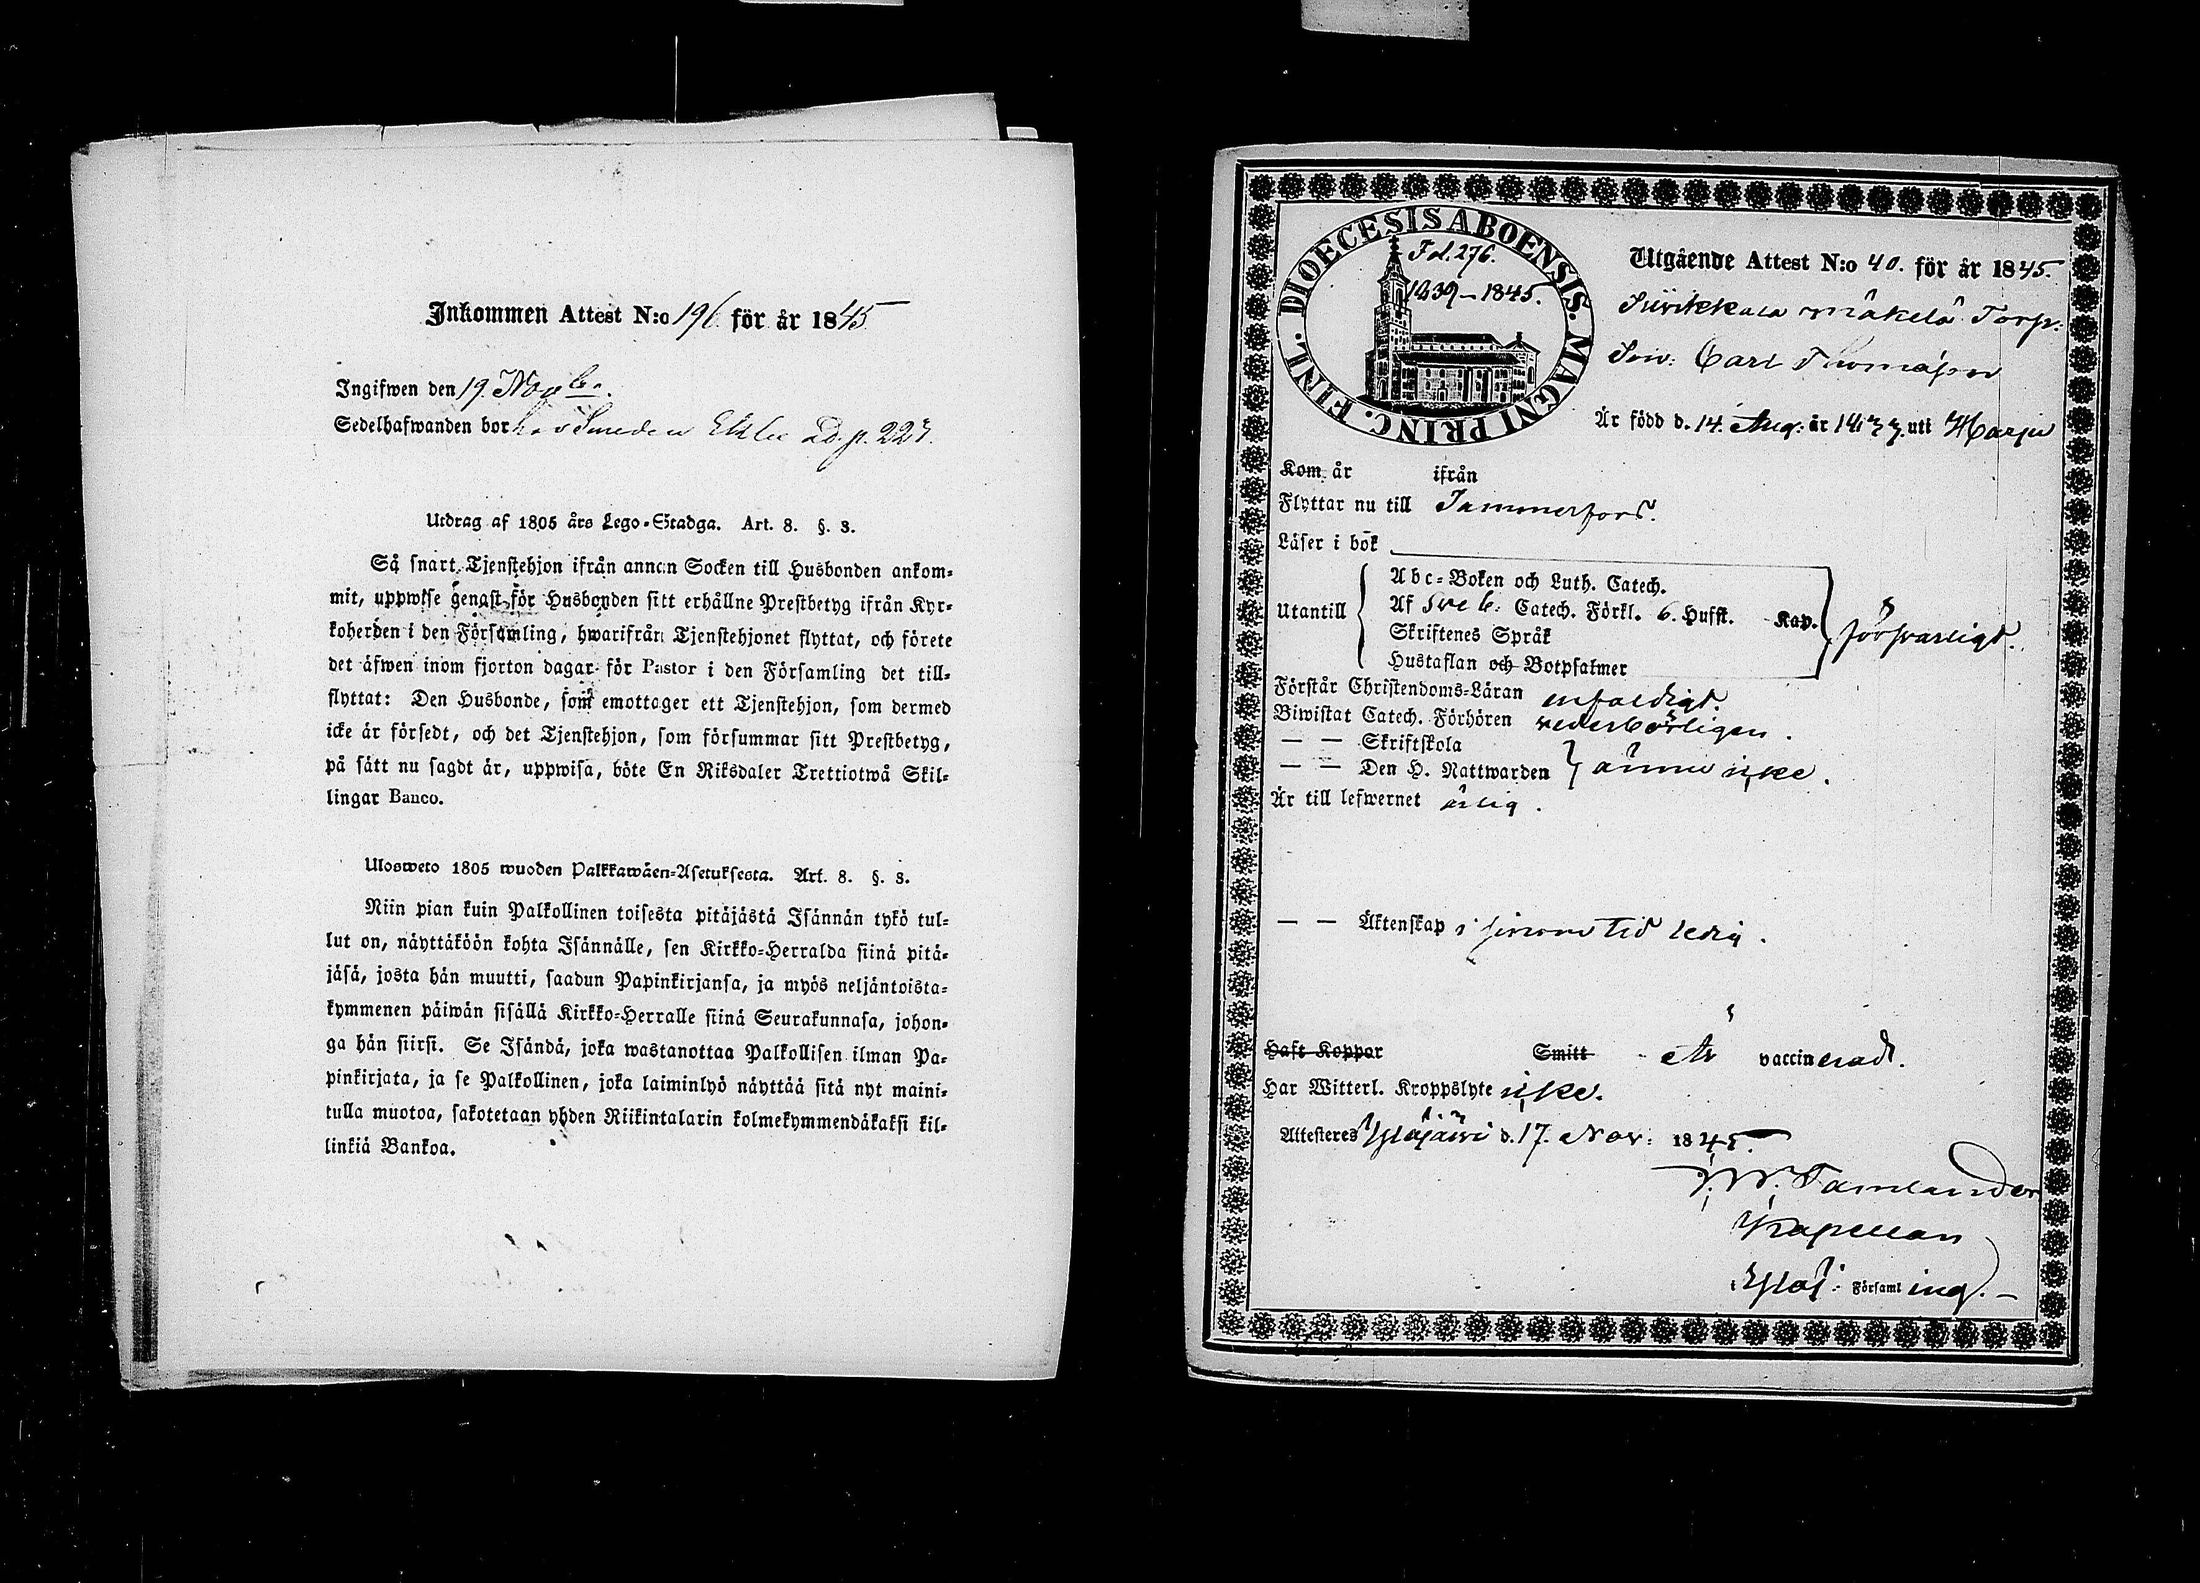 Inkommen Attest N:o 196 för år 1845
Ingifwen den 19 Novbr.
Sedelhafwanden bor hos Smeden Ad. p. 227.
Utdrag af 1805 års Lego-Stadga. Art. 8. §. 3.
Så snart Tjenstehjon ifrån annan Socken till Husbonden ankom-
mit, uppwise genast för Husbonden sitt erhållne Prestbetyg ifrån Kyr-
koherden i den Församling, hwarifrån Tjenstehjonet flyttat, och förete
det äfwen inom fjorton dagar för Pastor i den Församling det till-
flyttat: Den Husbonde, som emottager ett Tjenstehjon, som dermed
icke är försedt, och det Tjenstehjon, som försummar sitt Prestbetyg,
på sätt nu sagdt är, uppwisa, böte En Riksdaler Trettiotwå Skil-
lingar Banco.
Ulosweto 1805 wuoden Palkkawäen-Asetuksesta. Art. 8. §. 3.
Niin pian kuin Palkollinen toisesta pitäjästä Isännän tykö tul-
lut on, näyttäköön kohta Isännälle, sen Kirkko-Herralda siinä pitä-
jäsä, josta hän muutti, saadun Papinkirjansa, ja myös neljäntoista-
kymmenen päiwän sisällä Kirkko-Herralle siinä Seurakunnasa, johon-
ga hän siirsi. Se Isändä, joka wastanottaa Palkollisen ilman Pa-
pinkirjata, ja se Palkollinen, joka laiminlyö näyttää sitä nyt maini-
tulla muotoa, sakotetaan yhden Riikintalarin kolmekymmendäkaksi kil-
linkiä Bankoa.
DIOECESIS ABOENSIS. MAGNI PRINC. FINL.
Fol. 276.
1839–1845.
Utgående Attest N:o 40. för år 1845.
Mäkelä Torp.
Son: Carl Thomasson
Är född d. 14. Aug. år uti Harju
Kom år ifrån
Flyttar nu till Tammerfors.
Läser i bok
Utantill
Abc-Boken och Luth. Catech.
Af Sveb. Catech. Förkl. 6. Hufst. Kap.
Skriftenes Språk
Hustaflan och Botpsalmer
försvarligt.
Förstår Christendoms-Läran enfaldigt.
Biwistat Catech. Förhören vederbörligen.
— — Skriftskola
— — Den H. Nattwarden ännu icke.
Är till lefwernet ärlig.
— — Äktenskap i sinom tid ledig.
Haft Koppor Smitt Är vaccinerad.
Har Witterl. Kroppslyte icke.
Attesteres Ylöjärvi d. 17. Nov: 1845.
Kapellan
Ylöj: Församling.